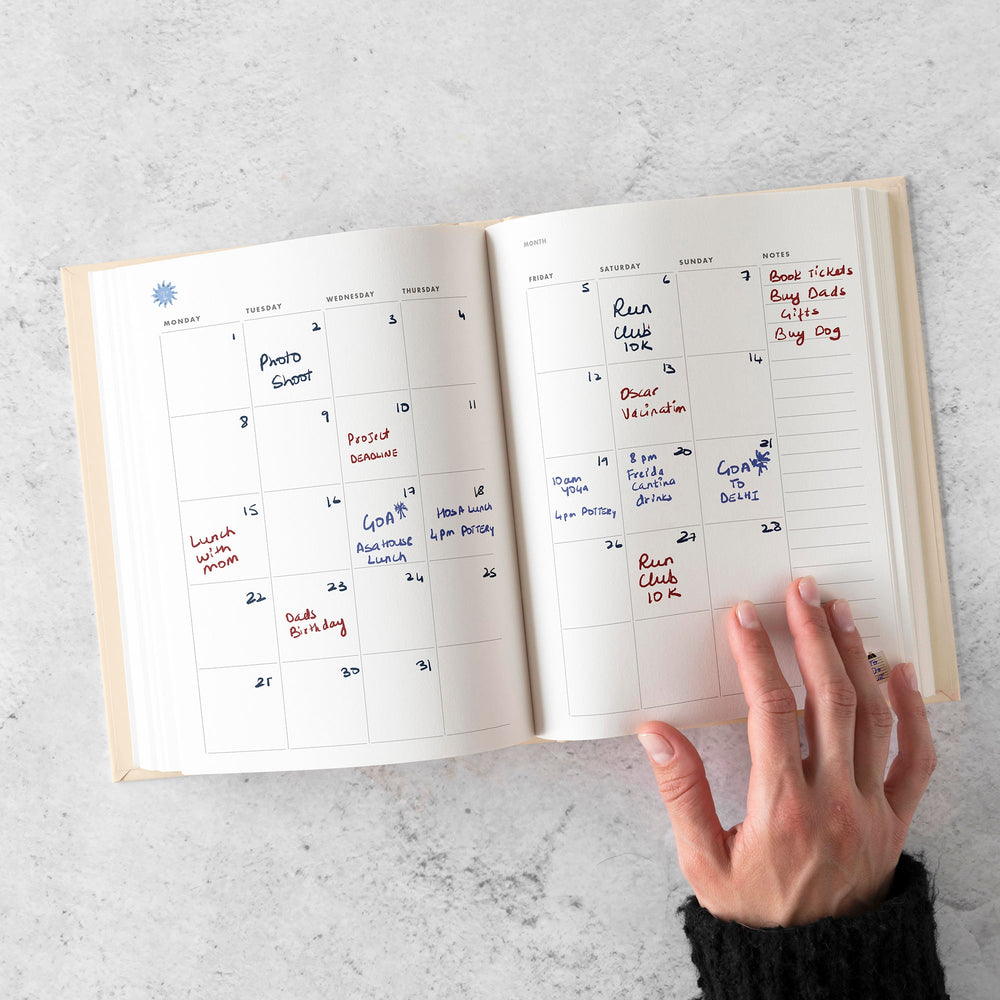 MONDAY
TUESDAY
WEDNESDAY
THURSDAY
1
2
Photo
Shoot
3
4
8
9
10
Project
DEADLINE
11
15
Lunch
with
mom
16
17
GOA
Asa House
Lunch
18
HOSA Lunch
4pm POTTERY
22
23
Dads
Birthday
24
25
30
31
MONTH
FRIDAY
SATURDAY
SUNDAY
NOTES
5
6
Run
Club
10K
7
Book Tickets
Buy Dads
Gifts
Buy Dog
12
13
Oscar
Vacination
14
19
10am
YOGA
4pm POTTERY
20
8 pm
Freida
Cantina
drinks
21
GOA
TO
DELHI
26
27
Run
Club
10K
28